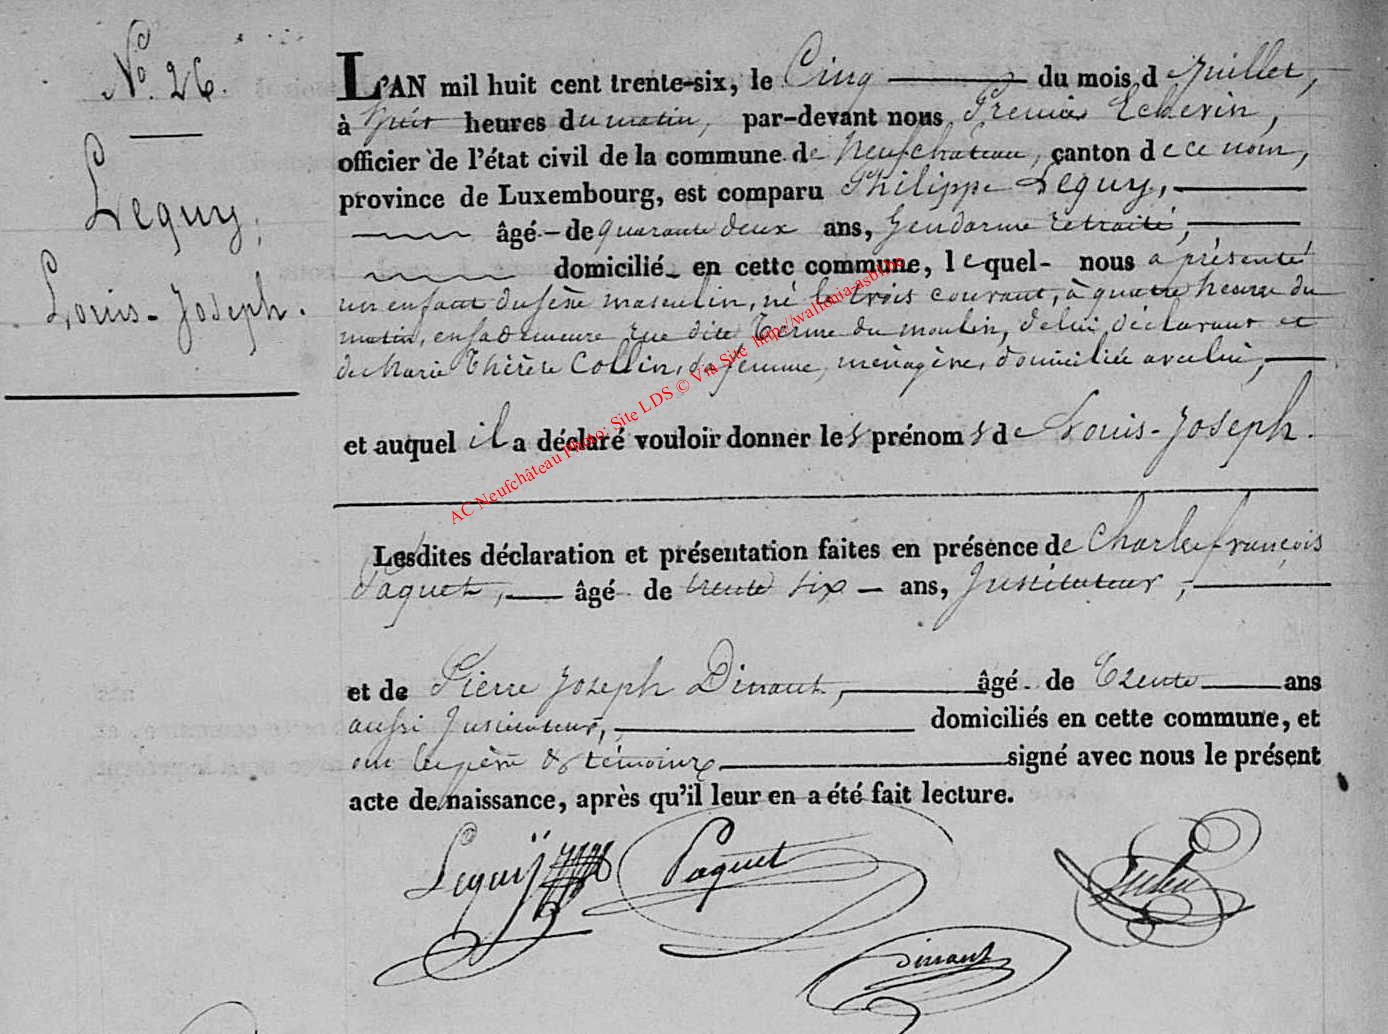 N.º 26.
Leguy,
Louis-Joseph.
L'AN mil huit cent trente-six, le Cinq du mois d Juillet,
à huit heures du matin, par-devant nous Premier Echevin,
officier de l'état civil de la commune de Neufchateau, canton de ce nom,
province de Luxembourg, est comparu Philippe Leguy,
âgé de quarante deux ans, Gendarme retraité,
domicilié en cette commune, lequel nous a présenté
un enfant du sèxe masculin, né le trois courant, à quatre heures du
matin, en sa demeure rue dite Terme du moulin, de lui déclarant et
de Marie Thérèse Collin, sa femme, ménagère, domiciliée avec lui,
et auquel il a déclaré vouloir donner les prénoms de Louis-Joseph.
Lesdites déclaration et présentation faites en présence de Charles françois
Paquet, âgé de trente six ans, Instituteur,
et de Pierre Joseph Dinant, âgé de Trente ans
aussi Instituteur, domiciliés en cette commune, et
ont les père & témoins signé avec nous le présent
acte de naissance, après qu'il leur en a été fait lecture.
Leguÿ Paquet
Dinant
AC Neufchâteau Photo: Site LDS © Via Site http://wallonia-asbl.be